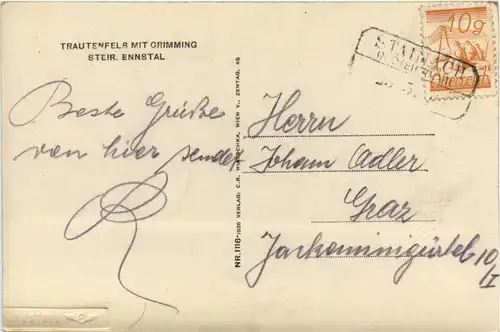 TRAUTENFELS MIT GRIMMING
STEIR. ENNSTAL
Beste Grüße
von hier sendet
NR. 1116-1926 VERLAG: C.R. WIEN V., ZENTAG. 45
10g
STAINACH
Herrn
Johann Adler
Graz
Jackominigürtel 10/I